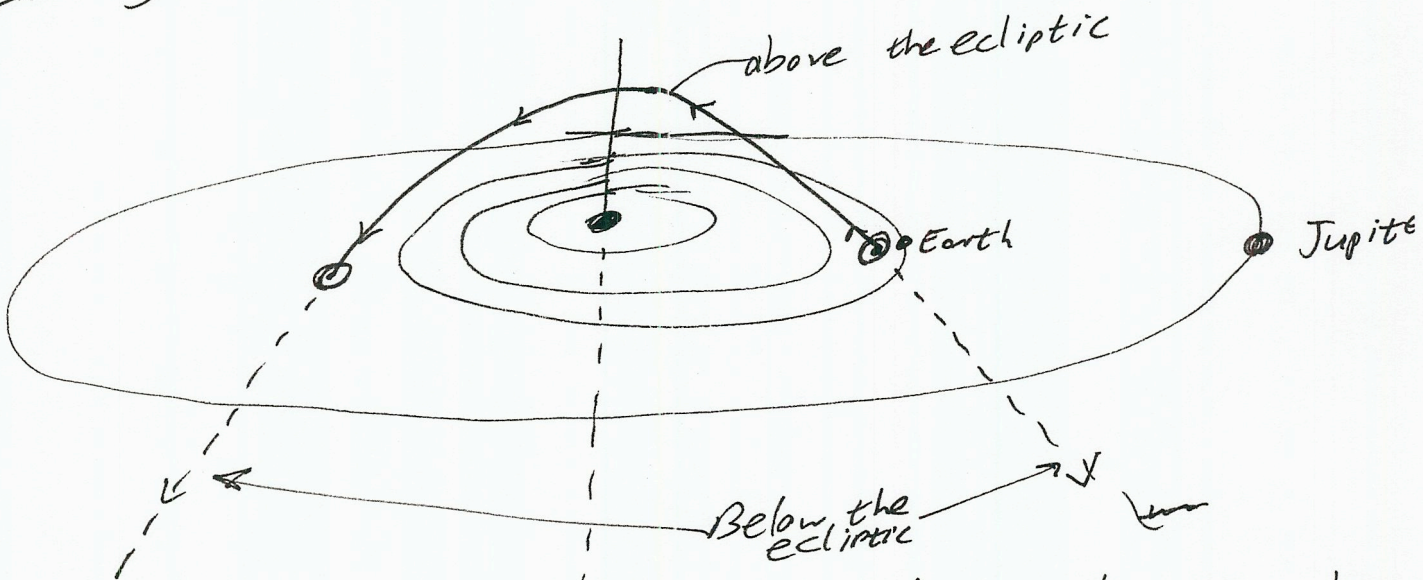 above the ecliptic
Earth
Jupite
Below the
ecliptic